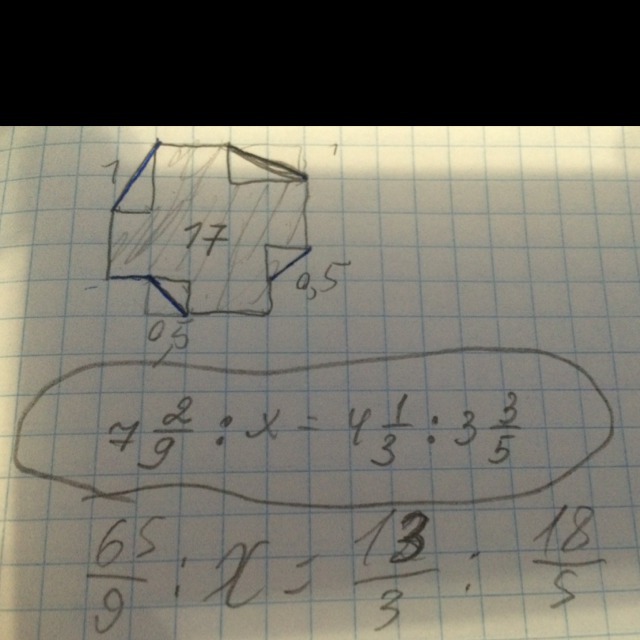 17
0,5
0,5
7 2/9 · x = 4 1/3 · 3 3/5
65/9 · x = 13/3 · 18/5